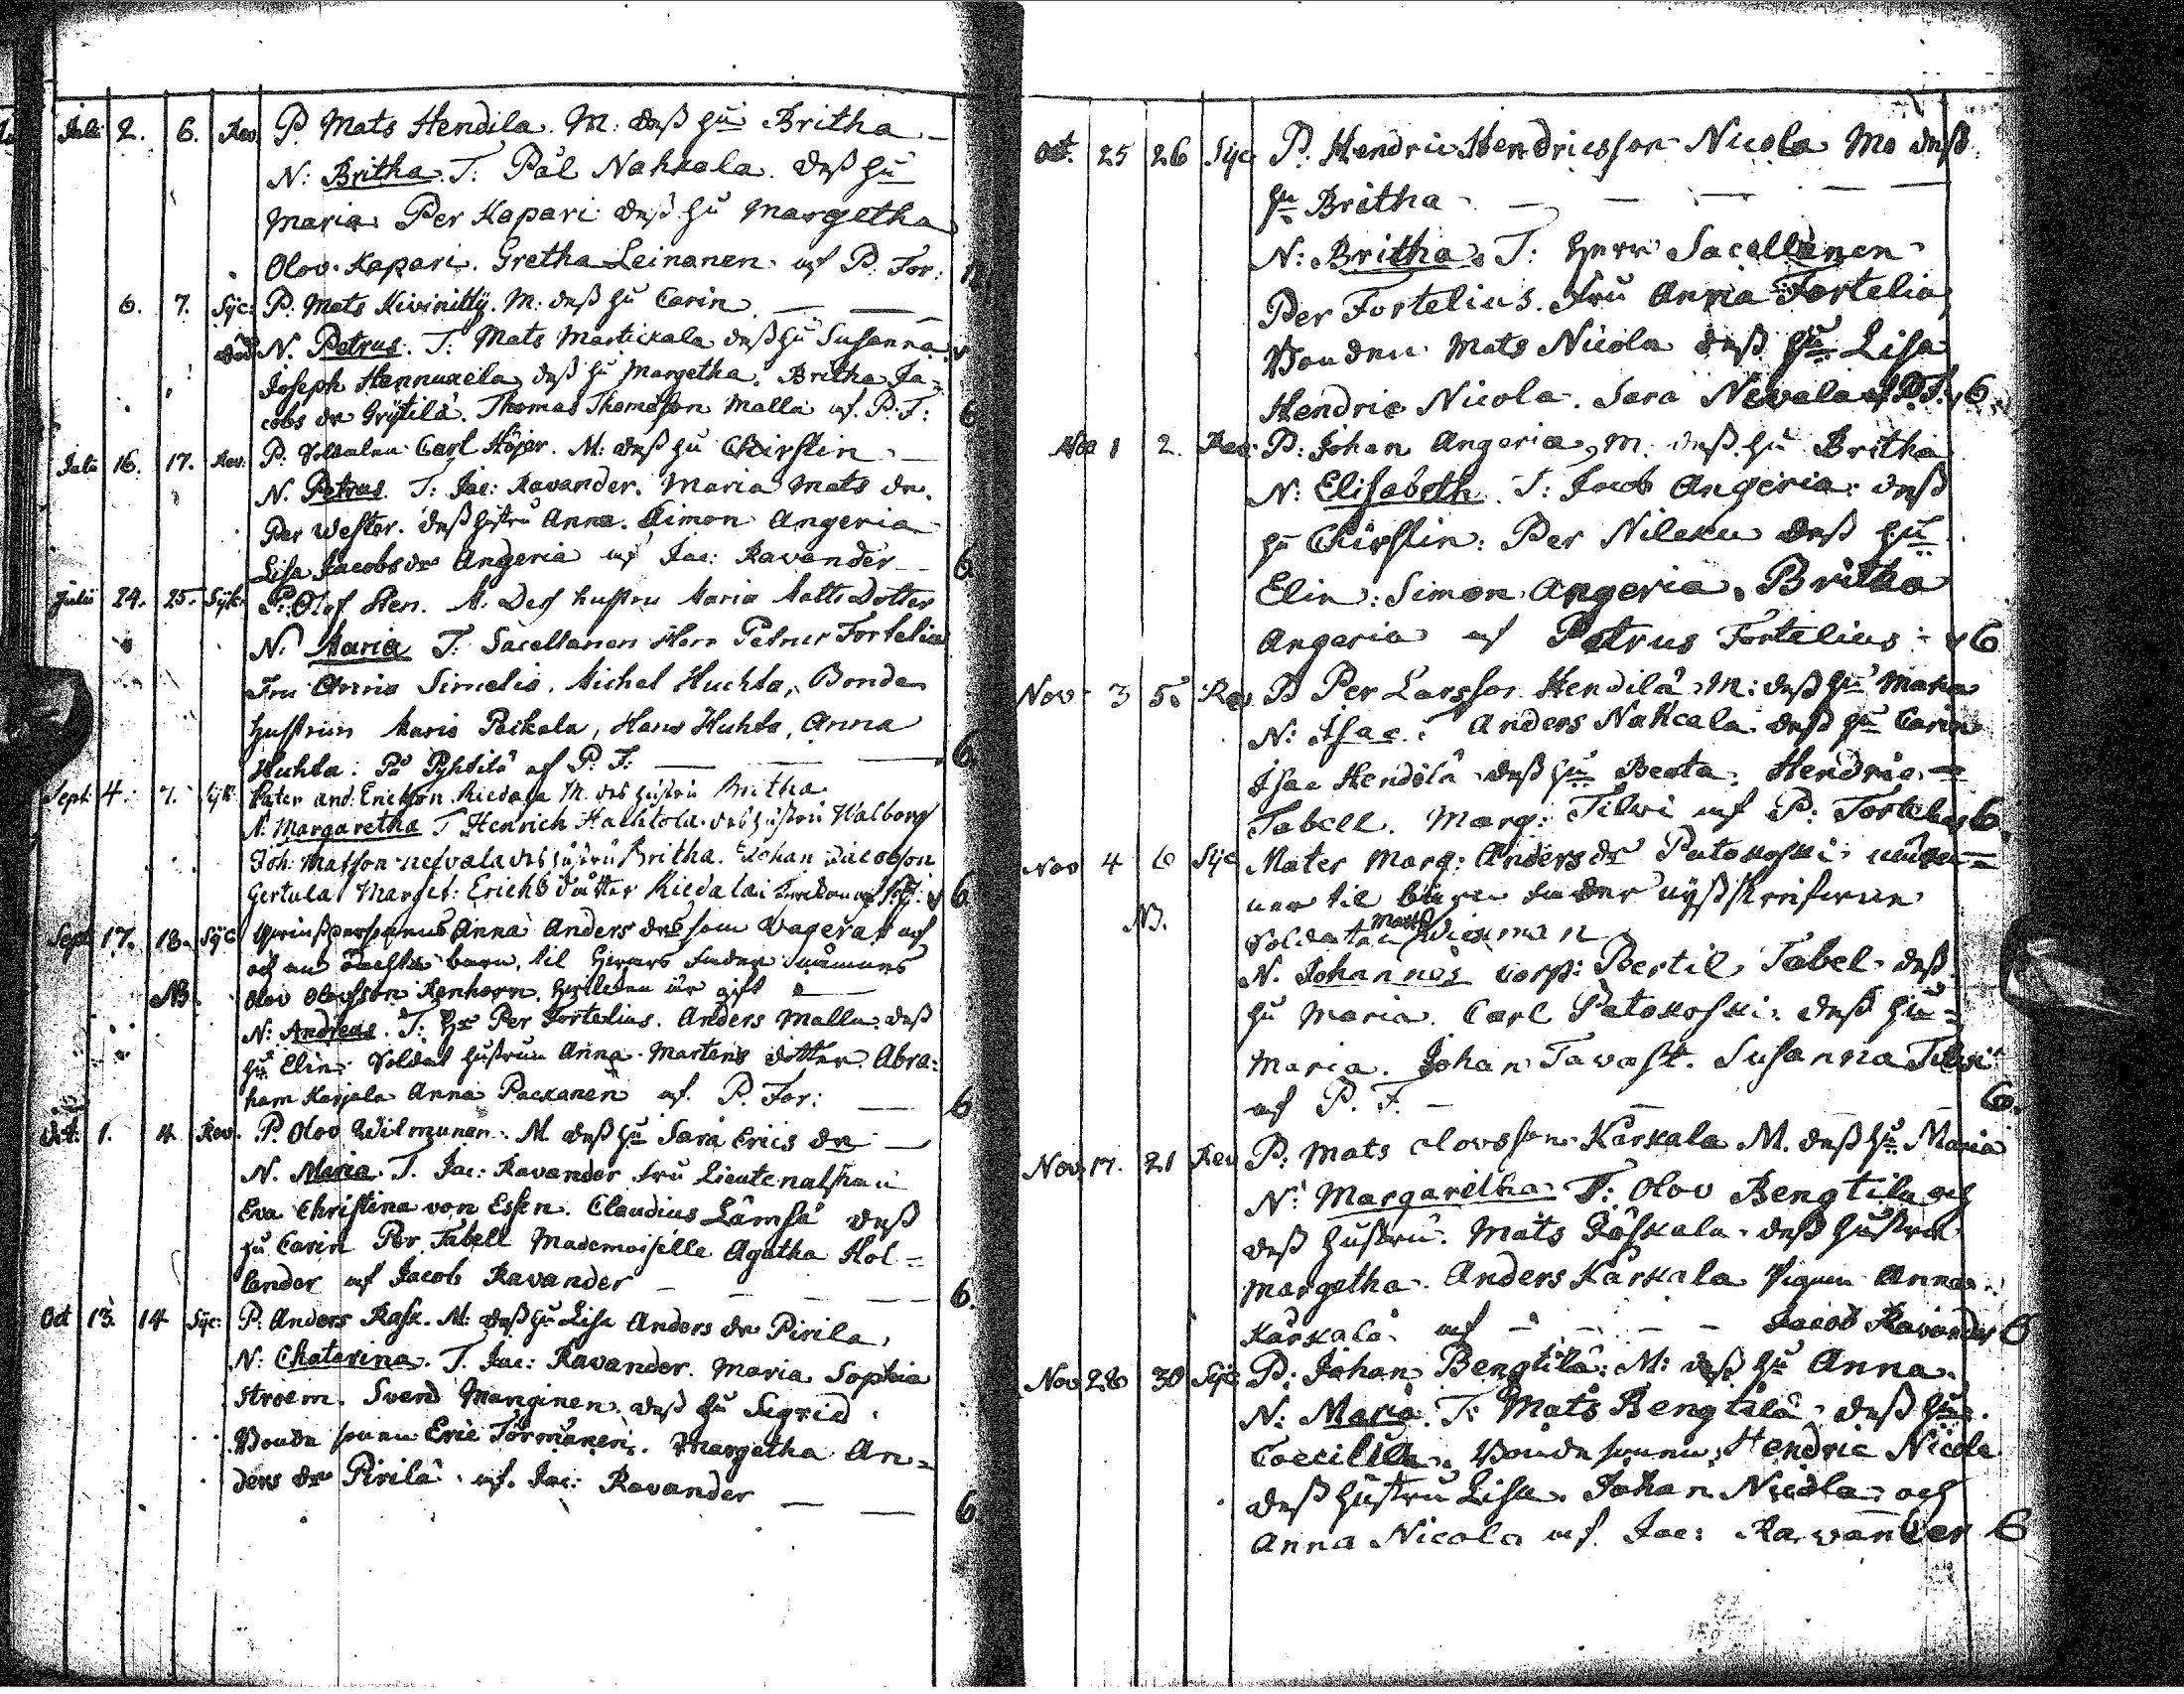 Juli 2. 6. Rov. P. Mats Hendila. M: deß hu Britha
N: Britha. T: Pål Nahkala. deß hu
Maria Per Kapari deß hu Margetha
Olov Kapari. Gretha Leinanen af P. For:
6. 7. Syc: P. Mats Kivinitty. M: deß hu Carin
död N. Petrus. T: Mats Martickala deß hu Susanna
Joseph Hannukela deß hu Margetha. Britha Ja=
cobs dr Grytilä. Thomas Thomasson Malla af. P. F: 6
Juli 16. 17. Rov. P: Soldaten Carl Höjer. M: deß hu Chirstin
N. Petrus. T: Jac: Ravander. Maria Mats dr.
Per Wester. deß hustru Anna. Simon Angeria
Lisa Jacobs dr Angeria af Jac: Ravander 6
Julii 24. 25. Syk. P: Olof Sten. M. Des hustru Maria Matts Dotter
N. Maria T. Sacellanen Herr Petrus Fortelius
Fru Anna Simelia. Michel Huchta, Bonde
hustrun Maria Poikela, Hans Huhta, Anna
Huhta: På Pyhtilä af P. F. 6
Sept: 4. 7. Syk. Pater And. Ericsson Kiedala M. des hustru Britha
N: Margaretha T Henrich Halvtola des hustru Walborg
Joh: Matsson Nefvala des hustru Britha. Johan Jacobson
Gertula Marget: Erichs dotter Kiedala 6
Sept 17. 18. Syc Anna Anders dr som
och barn, til fader
NB. Olov Olofsson Renhorn. är gift
N: Andreas. T: Hr Per Fortelius. Anders Malla. deß
hu Elin. Soldat hustrun Anna Martens dotter Abra:
ham Karjala Anna Packanen af. P. For: 6
Oct: 1. 4 Rov. P. Olov Wilmunen. M deß hu Sara Erics dr
N. Maria. T. Jac: Ravander fru Lieutenatskan
Eva Christina von Essen. Claudius Lämsä deß
hu Carin Per Tabell Mademoiselle Agatha Hol=
lander af Jacob Ravander 6.
Oct 13. 14 Syc: P. Anders Rask. M: deß hu Lisa Anders dr Pirila,
N: Chaterina. T. Jac: Ravander. Maria Sophia
Stroem. Svend Manginen. deß hu Sigrid.
Bonde sonen Eric Törmänen. Margetha An=
ders dr Pirilä. af. Jac: Ravander 6
Oct. 25 26 Syc P. Hendric Hendricsson Nicola Mo deß
hu Britha
N: Britha. T: Herr Sacellanen
Per Fortelius. Fru Anna Fortelia,
Bonden Mats Nicola deß hu Lisa
Hendric Nicola. Sara Nevala af P.F. 6
Nov 1 2. Rov. P: Johan Angeria, M. deß hu Britha
N: Elisabeth. T: Jacob Angeria: deß
hu Chirstin: Per Nileku deß hu
Elin: Simon Angeria. Britha
Angeria af Petrus Fortelius 6
Nov 3 5. Rov P Per Larsson Hendilä M: deß hu Maria
N: Isac. Anders Nahkala deß hu Carin
Isac Hendilä deß hu Beata. Hendric
Tabell. Marg: Tilvi af P: Fortelius 6.
Nov 4 6 Syc Mater Marg: Anders dr Patokoski
til fader
NB. Soldaten Mats Wicxman
N. Johannes corp: Bertil Tabel deß
hu Maria. Carl Patokoski. deß hu
Maria. Johan Tavast. Susanna Tilvi
af P. F. 6.
Nov 17. 21 Rov P: Mats Olovsson Karkala M. deß hu Maria
N: Margaretha T: Olov Bengtila och
deß hustru. Mats Kaskala deß hustru
Margetha. Anders Karkala Pigan Anna
Karkala af Jacob Ravander 6
Nov 28 30 Syc P: Johan Bengtilä: M: deß hu Anna.
N: Maria. T: Mats Bengtilä deß hu
Coecilia. Bonde sonen Hendric Nicola
deß hustru Lisa. Johan Nicola och
Anna Nicola af. Jac: Ravander 6